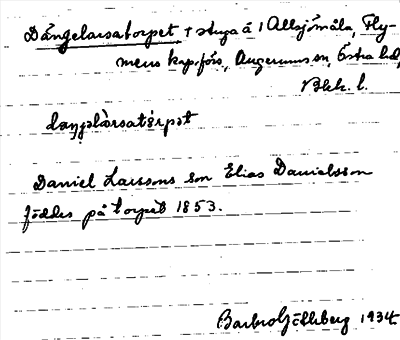 Dängelarsatorpet † stuga å 1 Allsjömåla, Fly-
mens kap.förs, Augerums sn, Östra hd,
Blek. l.
daŋəlàrsatórpət
Daniel Larssons son Elias Danielsson
föddes på torpet 1853.
Barbro Gällberg 1934